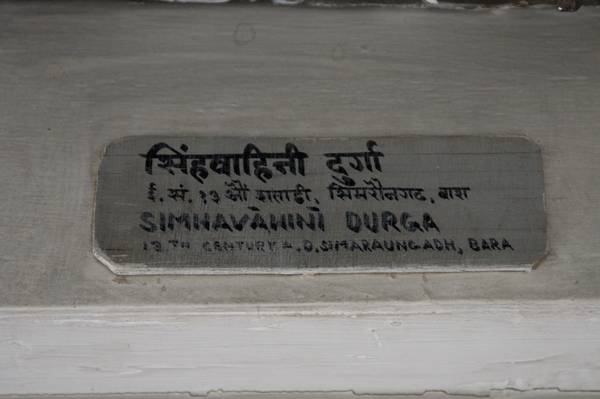 सिंहवाहिनी दुर्गा
ई. सं. १३ औं शताव्दी, सिमरौनगढ, बारा
SIMHAVAHINI DURGA
13TH CENTURY A.D. SIMARAUNGADH, BARA